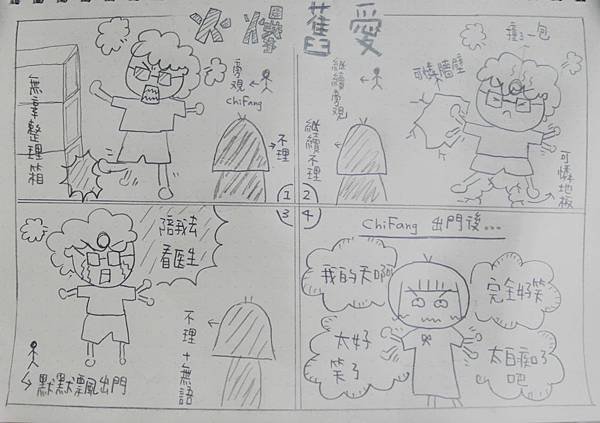 火爆
舊愛
無辜整理箱
旁觀
ChiFang
不理
1
腫了一包
可憐牆壁
繼續旁觀
繼續不理
可憐地板
2
3
陪我去
看医生
不理+無語
默默飄出門
4
ChiFang 出門後...
我的天啊
完全好笑
太好
笑了
太白痴了
吧